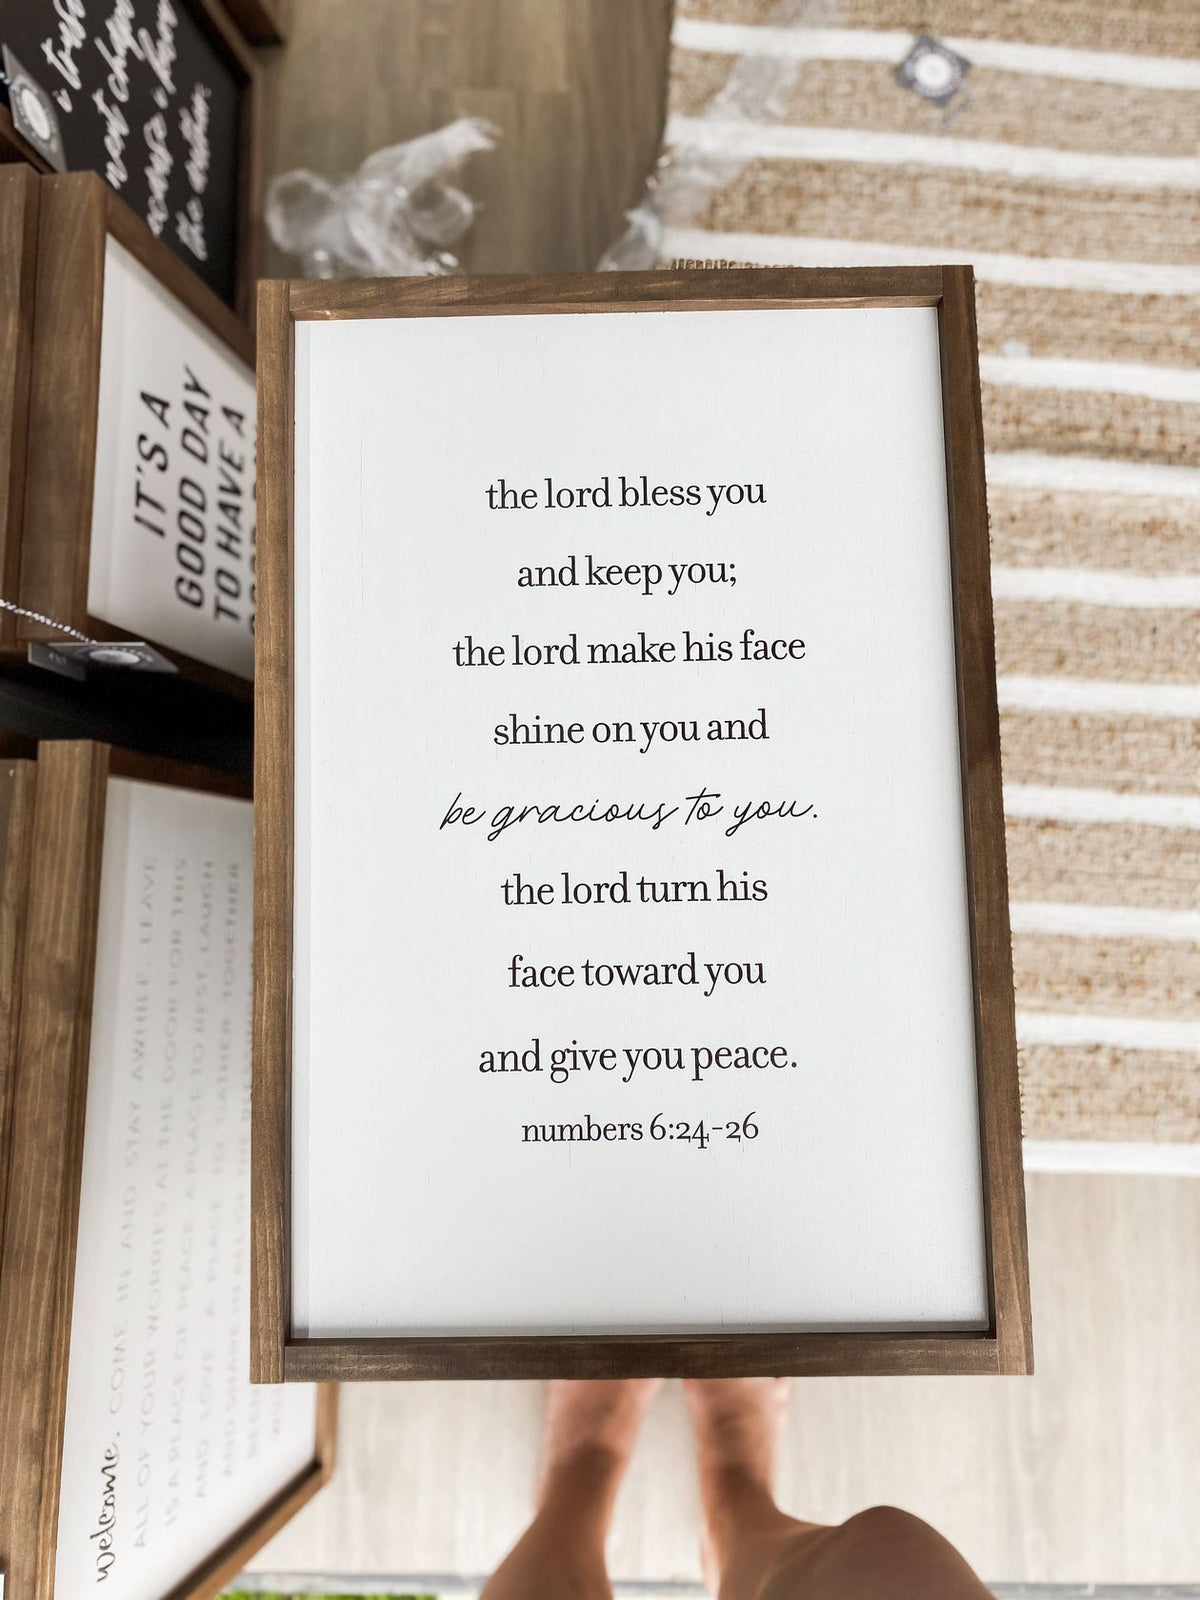 the lord bless you
and keep you;
the lord make his face
shine on you and
be gracious to you.
the lord turn his
face toward you
and give you peace.
numbers 6:24-26
IT'S A
GOOD DAY
TO HAVE A
welcome. COME IN AND STAY AWHILE. LEAVE
ALL OF YOUR WORRIES AT THE DOOR FOR THIS
IS A PLACE OF PEACE. A PLACE TO REST, LAUGH
AND LOVE. A PLACE TO GATHER TOGETHER